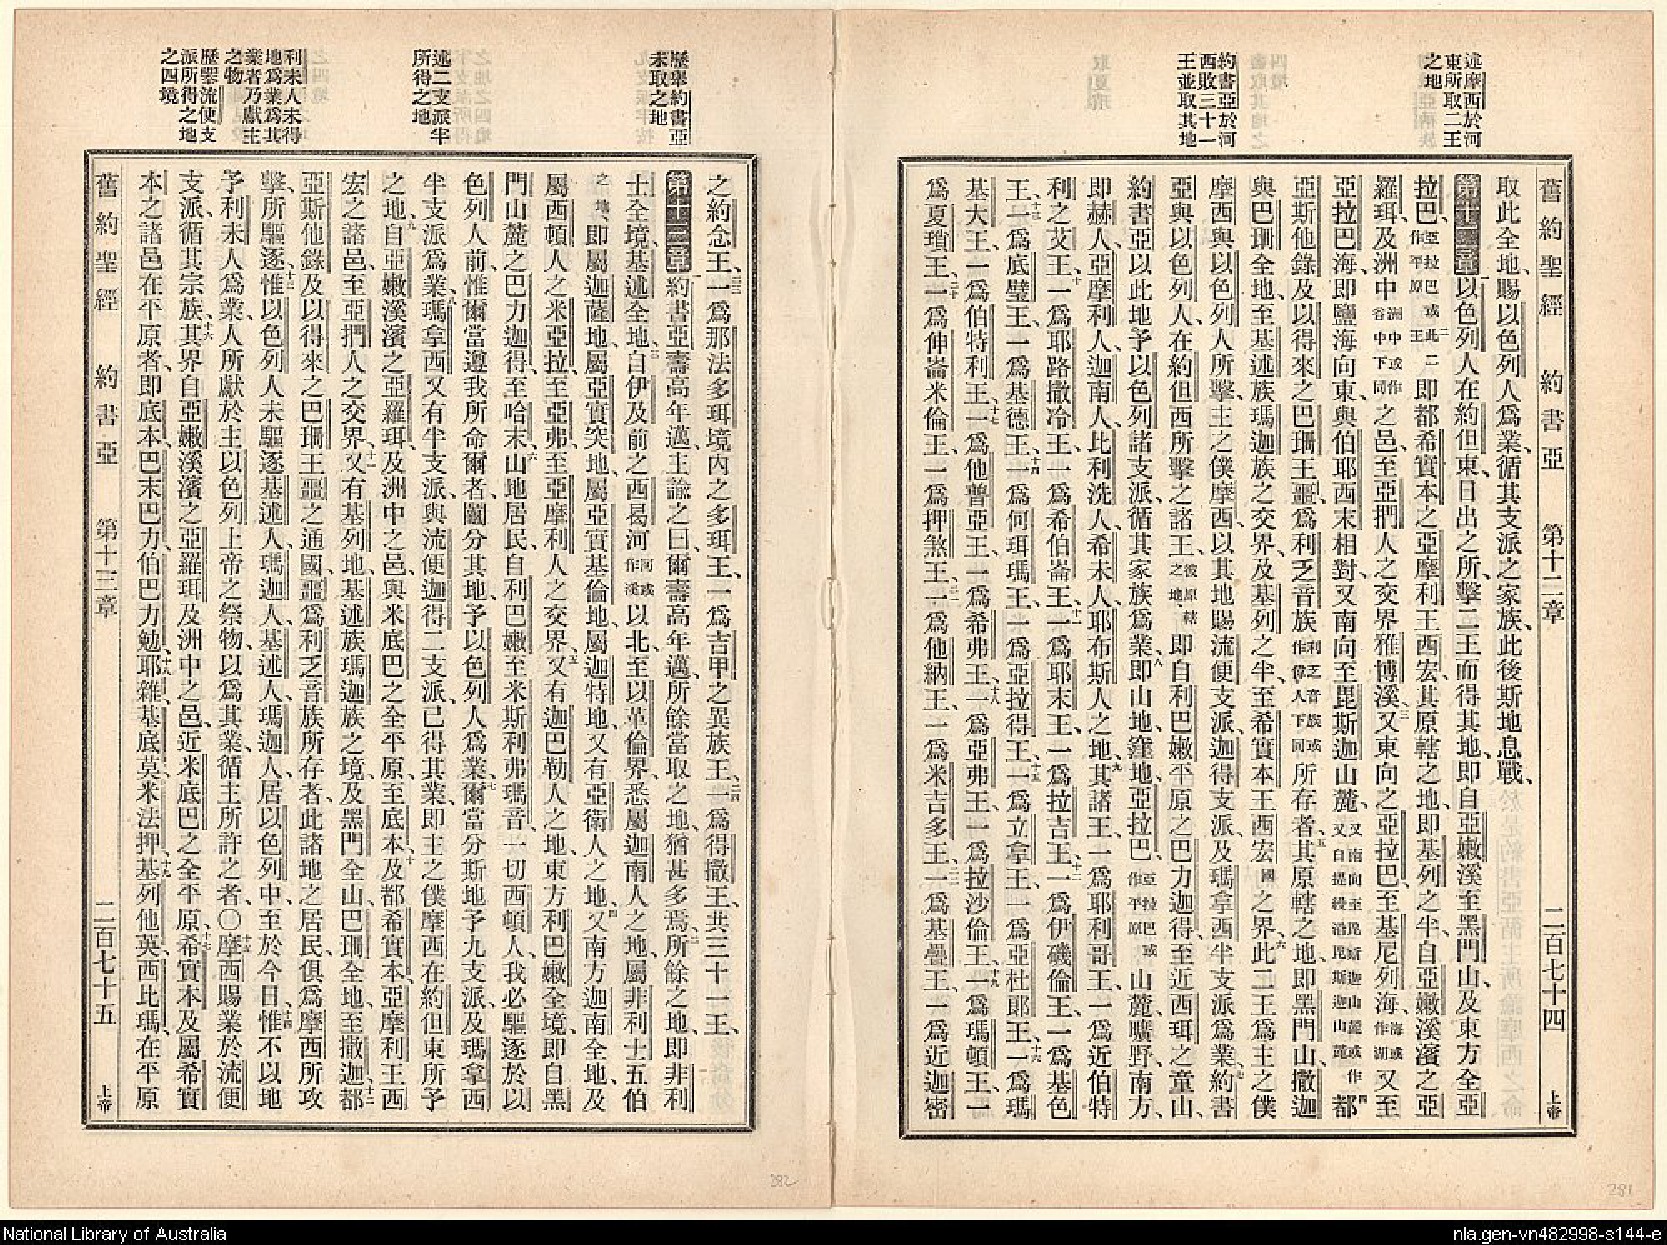 述摩西於河
東所取二王
之地
約書亞於河
西敗三十一
王並取其地
舊約聖經 約書亞 第十二章 二百七十四 上帝
取此全地、賜以色列人爲業、循其支派之家族、此後斯地息戰、
第十二章 一以色列人在約但東、日出之所、擊二王而得其地、即自亞嫩溪至黑門山、及東方全亞
拉巴、亞拉巴或作平原此二王二即都希實本之亞摩利王西宏、其原轄之地、即基列之半、自亞嫩溪濱之亞
羅珥、及洲中洲中或作谷中下同之邑、至亞捫人之交界雅博溪、三又東向之亞拉巴、至基尼列海海或作湖又至
亞拉巴海、即鹽海、向東、與伯耶西末相對、又南向至毘斯迦山麓、又南向至毘斯迦山麓或作四都
亞斯他錄及以得來之巴珊王噩、爲利乏音族利乏音族或作偉人下同所存者、五其原轄之地、即黑門山、撒迦
與巴珊全地、至基述族瑪迦族之交界、及基列之半、至希實本王西宏國之界、六此二王爲主之僕
摩西與以色列人所擊、主之僕摩西、以其地賜流便支派、迦得支派、及瑪拿西半支派爲業、七約書
亞與以色列人、在約但西所擊之諸王、彼原轄之地即自利巴嫩平原之巴力迦得、至近西珥之童山、
約書亞以此地予以色列諸支派、循其家族爲業、八即山地、窪地、亞拉巴、亞拉巴或作平原山麓、曠野、南方、
即赫人、亞摩利人、迦南人、比利洗人、希未人、耶布斯人之地、九其諸王、一爲耶利哥王、一爲近伯特
利之艾王、十一爲耶路撒冷王、一爲希伯崙王、十一一爲耶末王、一爲拉吉王、十二一爲伊磯倫王、一爲基色
王、十三一爲底璧王、一爲基德王、十四一爲何珥瑪王、一爲亞拉得王、十五一爲立拿王、一爲亞杜郎王、十六一爲瑪
基大王、一爲伯特利王、十七一爲他普亞王、一爲希弗王、十八一爲亞弗王、一爲拉沙倫王、十九一爲瑪頓王、一
爲夏瑣王、二十一爲伸崙米倫王、一爲押煞王、二一一爲他納王、一爲米吉多王、二二一爲基疊王、一爲近迦密
歷舉約書亞
未取之地
述二支派半
所得之地
利未人未得
地爲業爲其
業者乃獻主
之物
歷舉流便支
派所得之地
之四境
之約念王、二三一爲那法多珥境內之多珥王、一爲吉甲之異族王、二四一爲得撒王、共三十一王、
第十三章 一約書亞壽高年邁、主諭之曰、爾壽高年邁、所餘當取之地、猶甚多焉、二所餘之地、即非利
士全境、基述全地、三自伊及前之西曷河河或作溪以北、至以革倫界、悉屬迦南人之地、屬非利士五伯
之地、即屬迦薩地、屬亞實突地、屬亞實基倫地、屬迦特地、又有亞衛人之地、四又南方迦南全地、及
屬西頓人之米亞拉、至亞弗、至亞摩利人之交界、五又有迦巴勒人之地、東方利巴嫩全境、即自黑
門山麓之巴力迦得、至哈末、六山地居民、自利巴嫩至米斯利弗瑪音、一切西頓人、我必驅逐於以
色列人前、惟爾當遵我所命爾者、鬮分其地、予以色列人爲業、七爾當分斯地予九支派、及瑪拿西
半支派爲業、八瑪拿西又有半支派、與流便迦得二支派、已得其業、即主之僕摩西在約但東所予
之地、九自亞嫩溪濱之亞羅珥、及洲中之邑、與米底巴之全平原、至底本、十及都希實本、亞摩利王西
宏之諸邑、至亞捫人之交界、十一又有基列地、基述族瑪迦族之境、及黑門全山、巴珊全地、至撒迦、十二都
亞斯他錄及以得來之巴珊王噩之通國、噩爲利乏音族所存者、此諸地之居民、俱爲摩西所攻
擊、所驅逐、十三惟以色列人未驅逐基述人、瑪迦人、基述人、瑪迦人、居以色列中、至於今日、十四惟不以地
予利未人爲業、人所獻於主以色列上帝之祭物、以爲其業、循主所許之者、〇十五摩西賜業於流便
支派、循其宗族、十六其界自亞嫩溪濱之亞羅珥、及洲中之邑、近米底巴之全平原、十七希實本、及屬希實
本之諸邑在平原者、即底本、巴末巴力、伯巴力勉、十八耶雜、基底莫、米法押、十九基列他英、西比瑪、在平原
舊約聖經 約書亞 第十三章 二百七十五 上帝
282
281
National Library of Australia
nla.gen-vn482998-s144-e